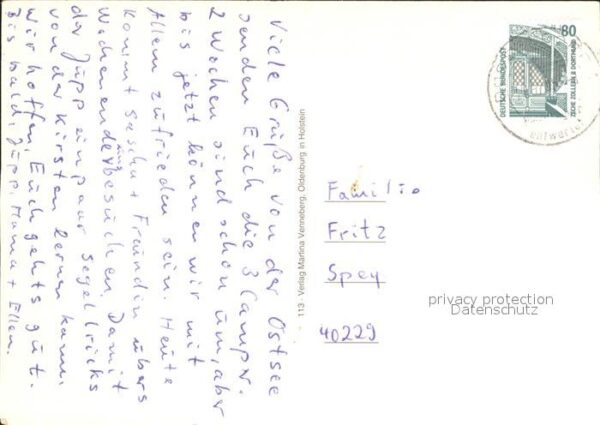 Viele Grüße von der Ostsee
senden Euch die 3 Camper.
2 Wochen sind schon um, aber
bis jetzt können wir mit
Allem zufrieden sein. Heute
kommt Sascha + Freundin übers
Wochenende uns besuchen. Damit
der Jupp ein paar Segeltricks
von der Kirsten lernen kann.
Wir hoffen, Euch gehts gut.
Bis bald, Jupp, Mama + Ellen.
113 Verlag Martina Venneberg, Oldenburg in Holstein
80
DEUTSCHE BUNDESPOST
ZECHE ZOLLERN II DORTMUND
Familie
Fritz
Spey
40229
privacy protection
Datenschutz